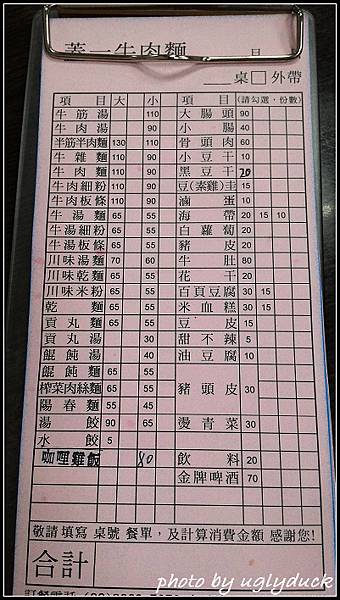 蓋一牛肉麵
桌□外帶
項目 大 小 項目 (請勾選，份數)
牛筋湯 110 大腸頭 90
牛肉湯 90 小腸 40
半筋半肉麵 130 110 骨頭肉 60
牛雜麵 110 90 小豆干 10
牛肉麵 110 90 黑豆干 20
牛肉細粉 110 90 豆(素雞)圭 15
牛肉板條 110 90 滷蛋 10
牛湯麵 65 55 海帶 20 15 10
牛湯細粉 65 55 白蘿蔔 20
牛湯板條 65 55 豬皮 20
川味湯麵 70 60 牛肚 80
川味乾麵 65 55 花干 20
川味米粉 65 55 百頁豆腐 30 15
乾麵 65 55 米血糕 30 15
貢丸麵 65 55 豆皮 15
貢丸湯 30 甜不辣 5
餛飩湯 40 油豆腐 10
餛飩麵 65 55
榨菜肉絲麵 65 55 豬頭皮 30
陽春麵 55 45
湯餃 90 65 燙青菜 30
水餃 5
咖哩雞飯 80 飲料 20
金牌啤酒 70
敬請填寫 桌號 餐單，及計算消費金額 感謝您!
合計
photo by uglyduck